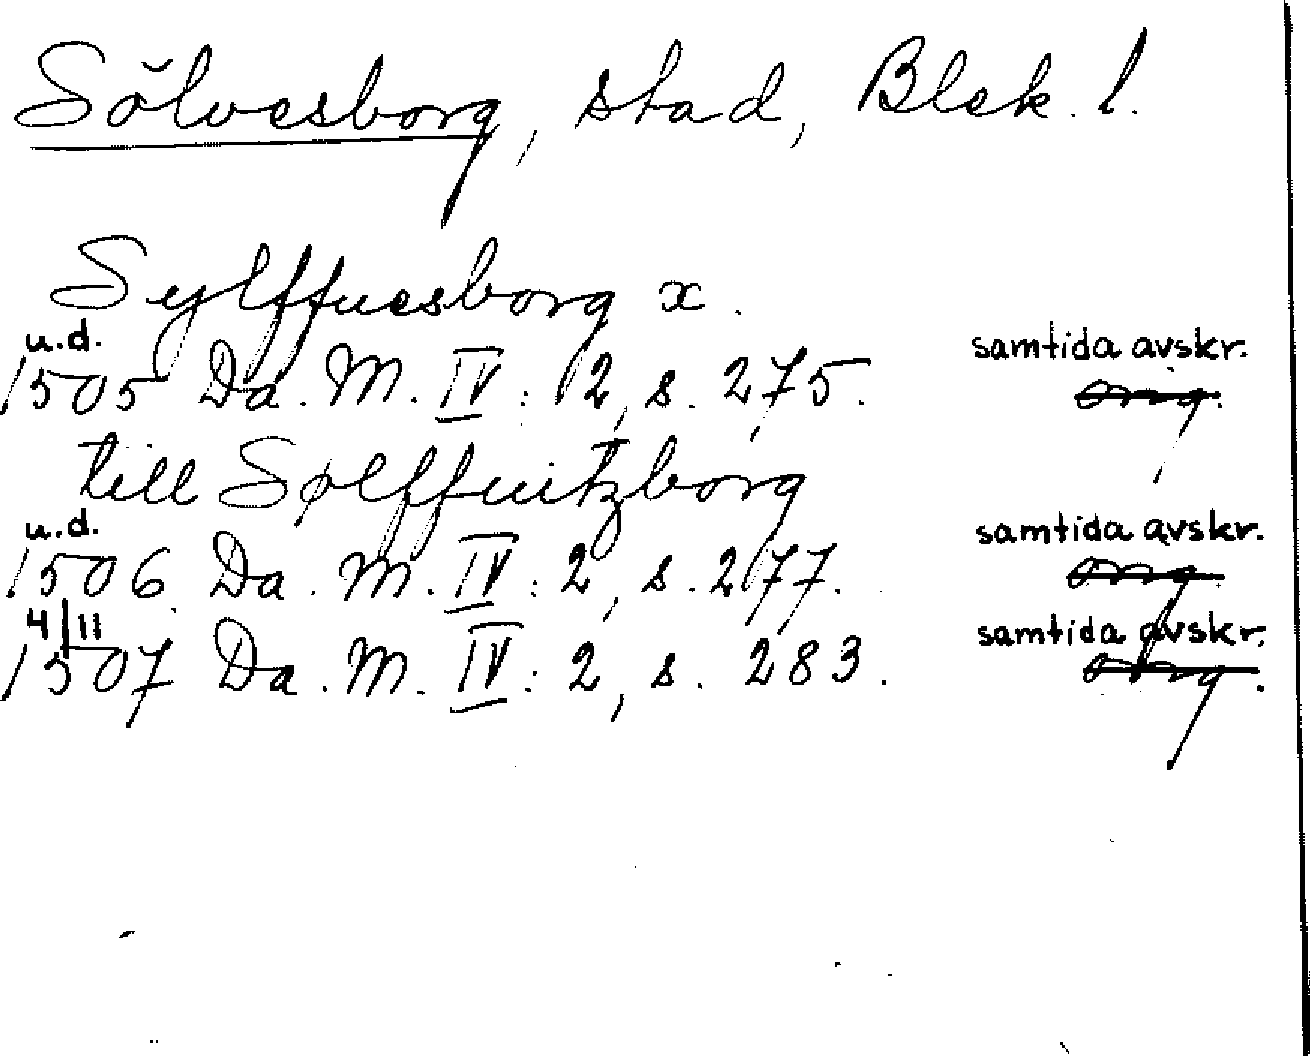 Sölvesborg, stad, Blek. l.
Sylffuesborg x.
u.d. samtida avskr.
1505 Da. M. IV: 2, s. 275. org.
till Sølffuitzborg
u.d. samtida avskr.
1506 Da. M. IV: 2, s. 277. org.
4/11 samtida avskr.
1507 Da. M. IV: 2, s. 283. org.